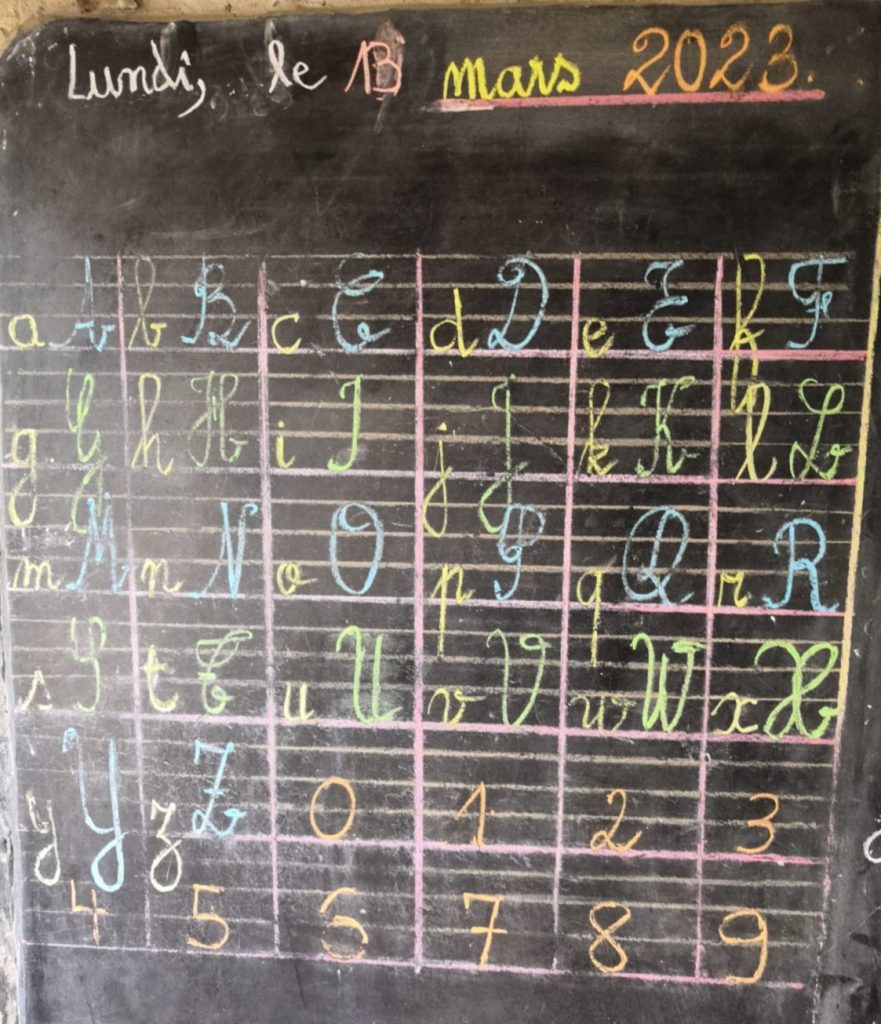 Lundi, le 13 mars 2023.
a A b B c C d D e E f F
g G h H i I j J k K l L
m M n N o O p P q Q r R
s S t T u U v V w W x X
y Y z Z 0 1 2 3
4 5 6 7 8 9